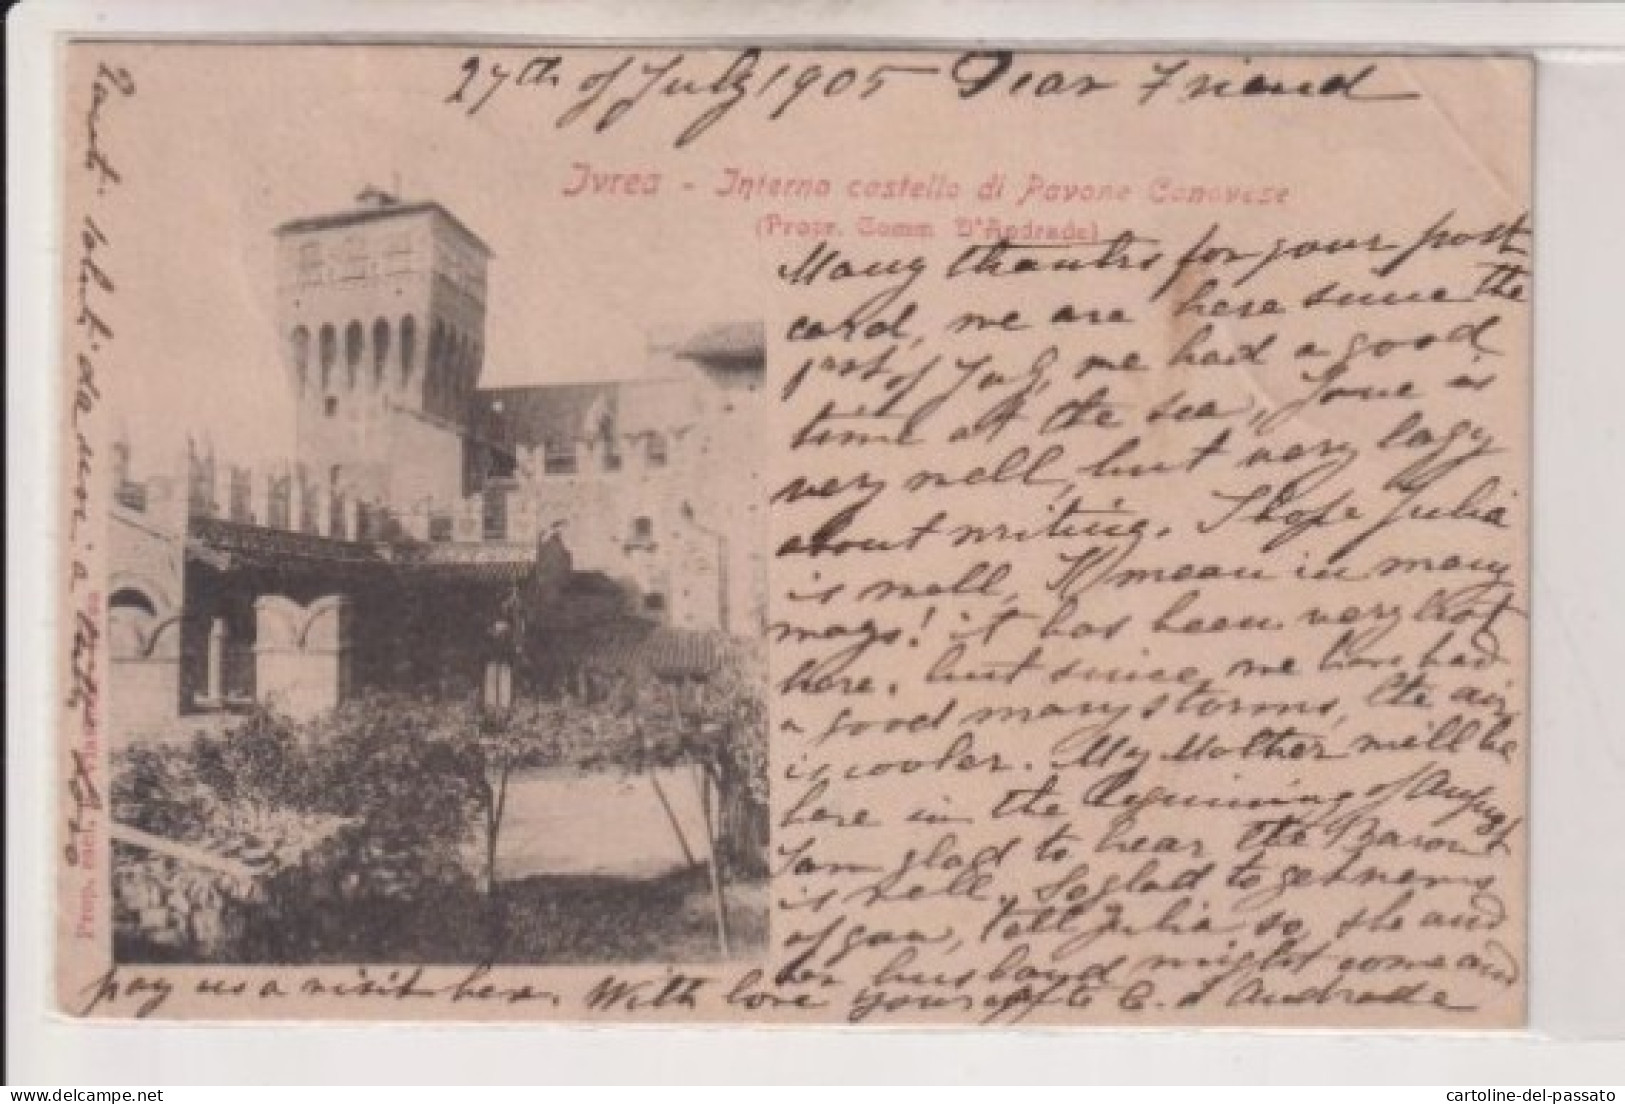 27th of July 1905 Dear Friend
Ivrea - Interno castello di Pavone Canavese
(Propr. Comm. D'Andrade)
Many thanks for your post
card, we are here since the
1rst of July, we had a good
time at the sea, is
very well, but very lazy
about writing. I hope Julia
is well, I mean in many
ways! it has been very hot
here, but since we have had
a good many storms, the air
is cooler. My Mother will be
here in the beginning of August
I am glad to hear the Baron
is well. So glad to get news
of you, tell Julia so, she and
her husband might come and
pay us a visit here. With love yours aff te C. d'Andrade
Tanti saluti da
Prop. escl.
cartoline-del-passato